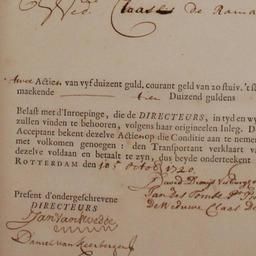 Wed. Claas De Rama
twee Actien van vyf duizent guld. courant geld van 20 stuiv. 't s
makende tien Duizend guldens
Belast met d'Inroepinge, die de DIRECTEURS, in tyd en wy
zullen vinden te behooren, volgens haar origineelen Inleg. D
Acceptant bekent dezelve Actie op die Conditie aan te nemen
met volkomen genoegen: en den Transportant verklaart va
dezelve voldaan en betaalt te zyn, dus beyde onderteekent
ROTTERDAM den 10 Octob 1720
Present d'ondergeschrevene
DIRECTEURS
Jan van
Daniel van
de Weduwe Claas de